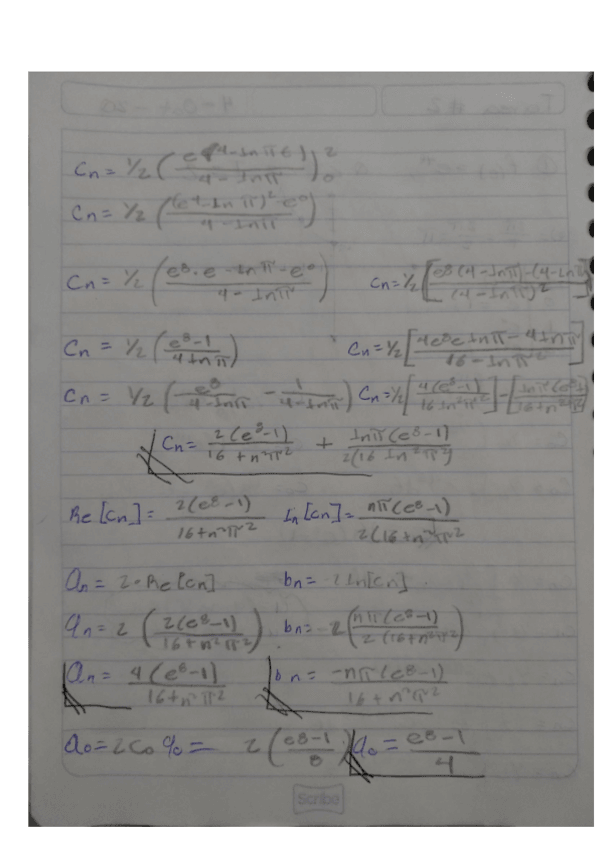 Cn = 1/2 ( e^(4-Inπt) / 4-Inπ )₀²
Cn = 1/2 ( (e4-Inπ)² - e⁰ / 4-Inπ )
Cn = 1/2 ( e⁸·e-Inπ-e⁰ / 4-Inπ ) Cn = 1/2 [ e⁸(4-Inπ)-(4-Inπ / (4-Inπ)² ]
Cn = 1/2 ( e⁸-1 / 4Inπ ) Cn = 1/2 [ 4e⁸eInπ - 4Inπ / 16-Inπ² ]
Cn = 1/2 ( e⁸ / 4-Inπ - 1 / 4-Inπ ) Cn = 1/2 [ 4(e⁸-1) / 16+n²π² ] - [ Inπ(e⁸-1 / 16+n²π² ]
Cn = 2(e⁸-1) / 16+n²π² + Inπ(e⁸-1) / 2(16 In²π²)
Re[Cn] = 2(e⁸-1) / 16+n²π² In[Cn] = nπ(e⁸-1) / 2(16+n²π²
an = 2·Re[Cn] bn = 2In[Cn]
an = 2 ( 2(e⁸-1) / 16+n²π² ) bn = -2 ( nπ(e⁸-1) / 2(16+n²π² )
an = 4(e⁸-1) / 16+n²π² bn = -nπ(e⁸-1) / 16+n²π²
a₀ = 2C₀ a₀ = 2 ( e⁸-1 / 8 ) a₀ = e⁸-1 / 4
Scribe